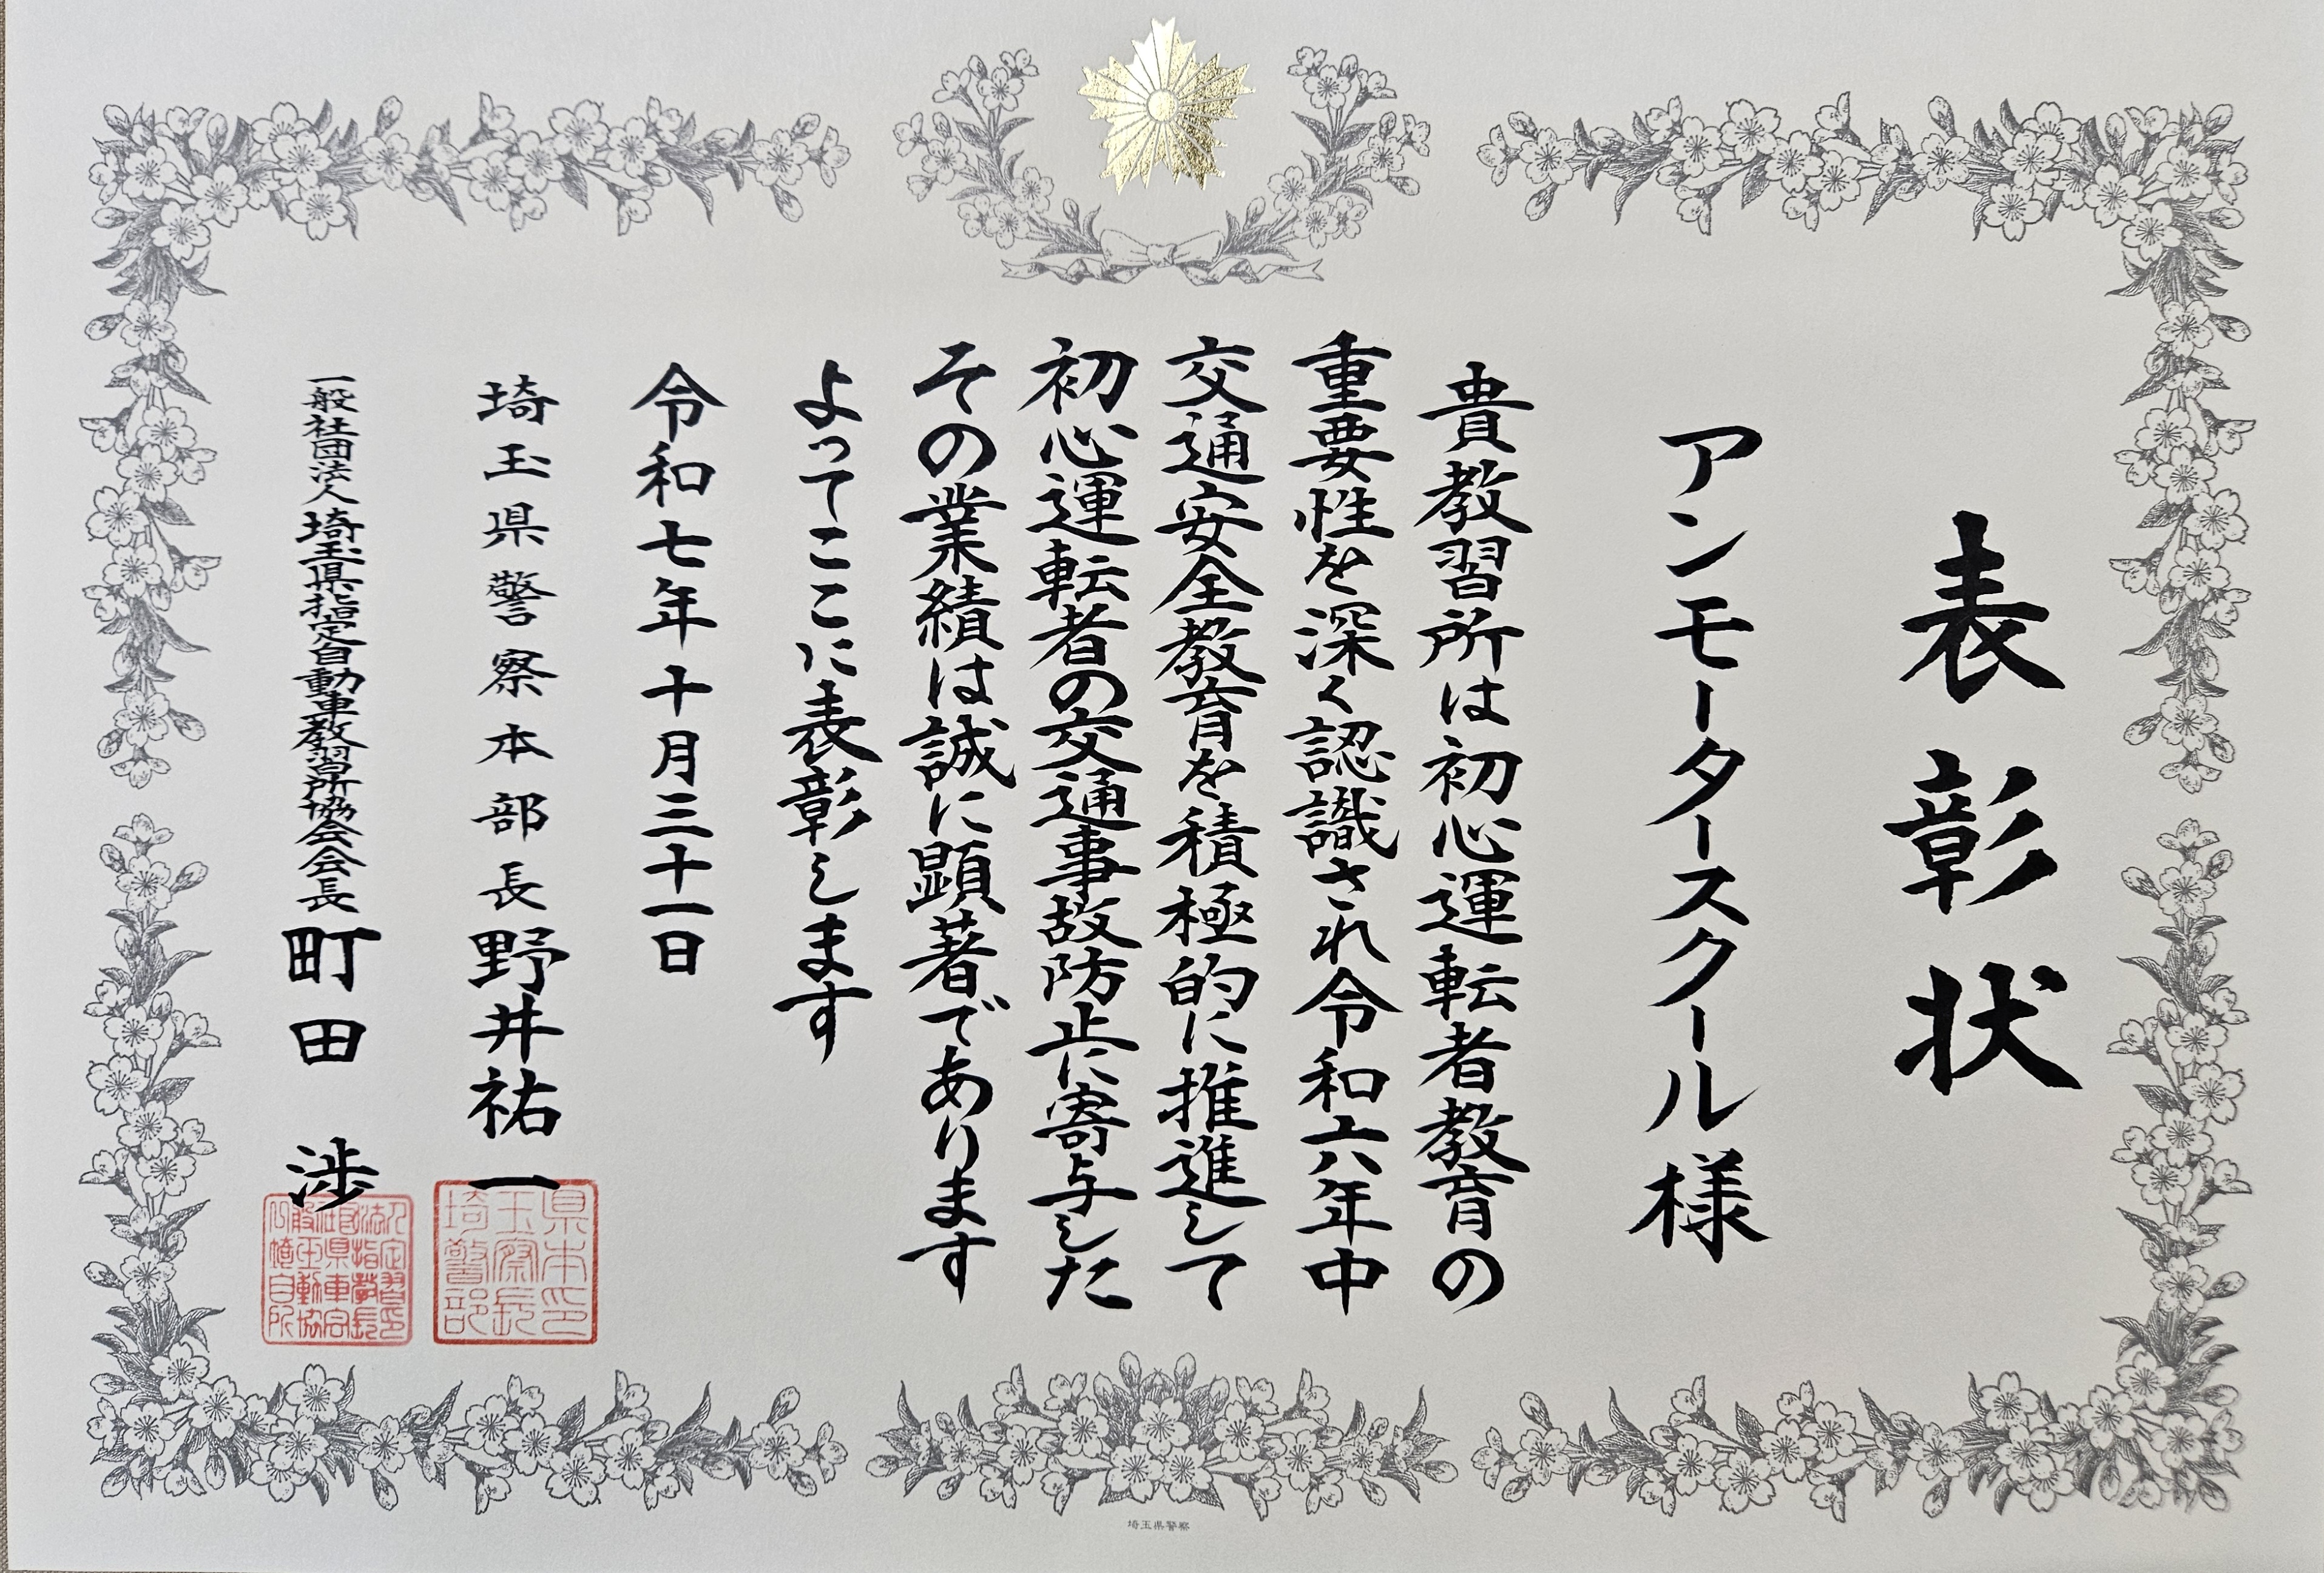 表彰状
アンモータースクール様
貴教習所は初心運転者教育の
重要性を深く認識され令和六年中
交通安全教育を積極的に推進して
初心運転者の交通事故防止に寄与した
その業績は誠に顕著であります
よってここに表彰します
令和七年十月三十一日
埼玉県警察本部長野井祐一
一般社団法人埼玉県指定自動車教習所協会会長町田渉
埼玉県警察本部長印
埼玉県警察